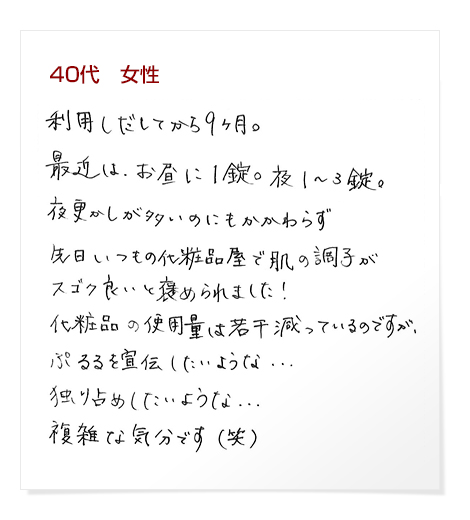 40代 女性
利用しだしてから9ヶ月。
最近は、お昼に1錠。夜1~3錠。
夜更かしが多いのにもかかわらず
先日いつもの化粧品屋で肌の調子が
スゴク良いと褒められました!
化粧品の使用量は若干減っているのですが、
ぷるるを宣伝したいような...
独り占めしたいような...
複雑な気分です(笑)